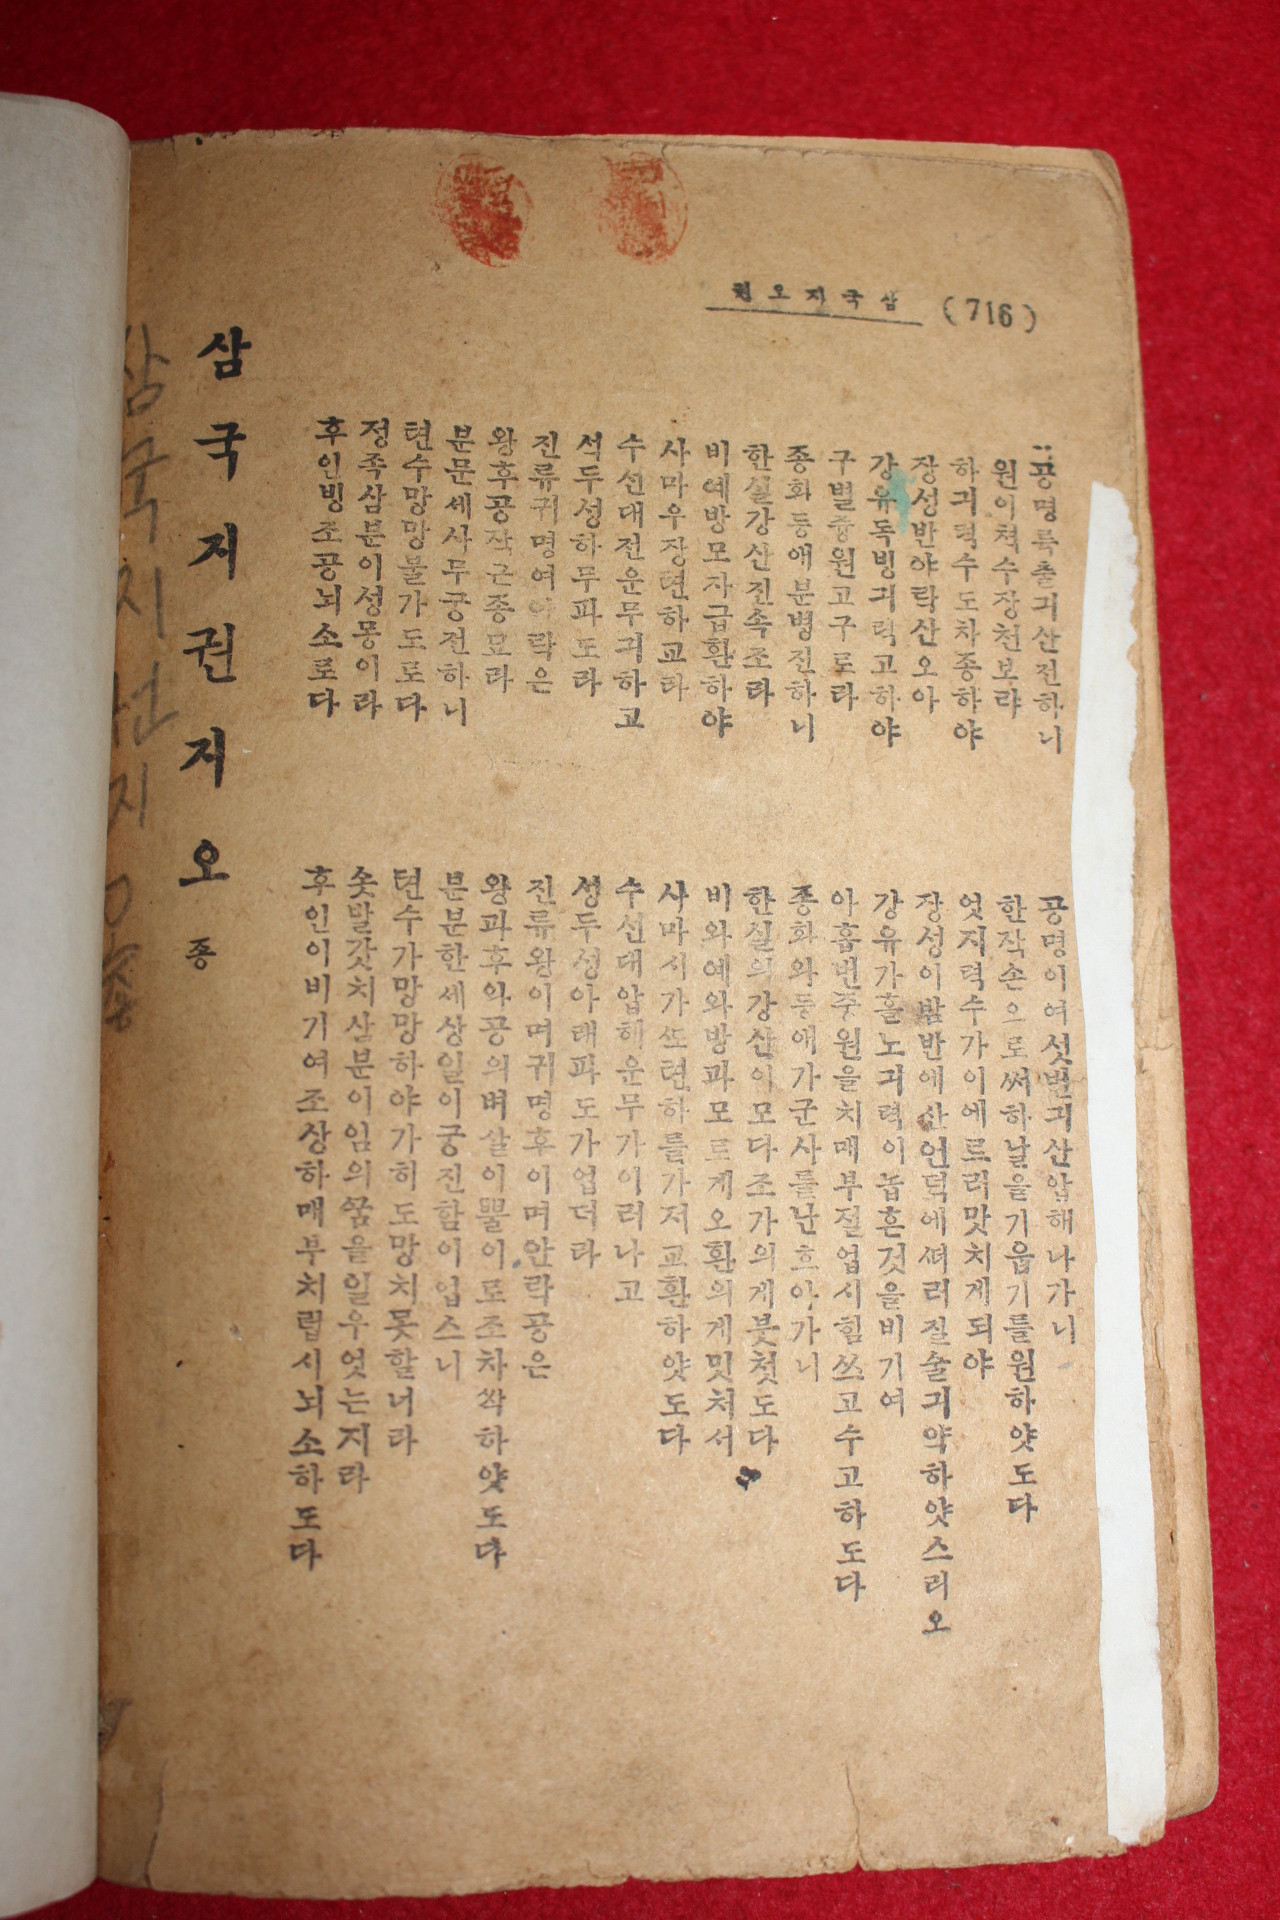 삼국지오권 (716)
공명륙출긔산전하니 공명이여섯번긔산압해나가니
원이쳑수장천보랴 한작손으로써하날을기웁기를원하얏도다
하긔력수도차종하야 엇지력수가이에르러맛치게되야
장성반야락산오아 장성이밤반에산언덕에셔러질술긔약하얏스리오
강유독빙긔력고하야 강유가홀노긔력이놉흔것을비기여
구벌중원고구로라 아홉번중원을치매부졀업시힘쓰고수고하도다
종회등애분병진하니 종회와등애가군사를난흐아가니
한실강산진속조라 한실의강산이모다조가의게붓첫도다
비예방모자급환하야 비와예와방과모로게오환의게밋처서
사마우장텬하교라 사마시가쏘텬하를가저교환하얏도다
수선대전운무긔하고 수선대압헤운무가이러나고
석두성하무파도라 셩두성아래파도가업더라
진류귀명여안락은 진류왕이며귀명후이며안락공은
왕후공작근종묘라 왕과후와공의벼살이뿔이로조차싹하얏도다
분문세사무궁진하니 분분한세상일이궁진함이업스니
텬수망망불가도로다 텬수가망망하야가히도망치못할너라
정족삼분이성몽이라 솟발갓치삼분이임의꿈을일우엇는지라
후인빙조공뇌소로다 후인이비기여조상하매부치럽시뇌소하도다
삼국지권지오 종
삼국지권지오종